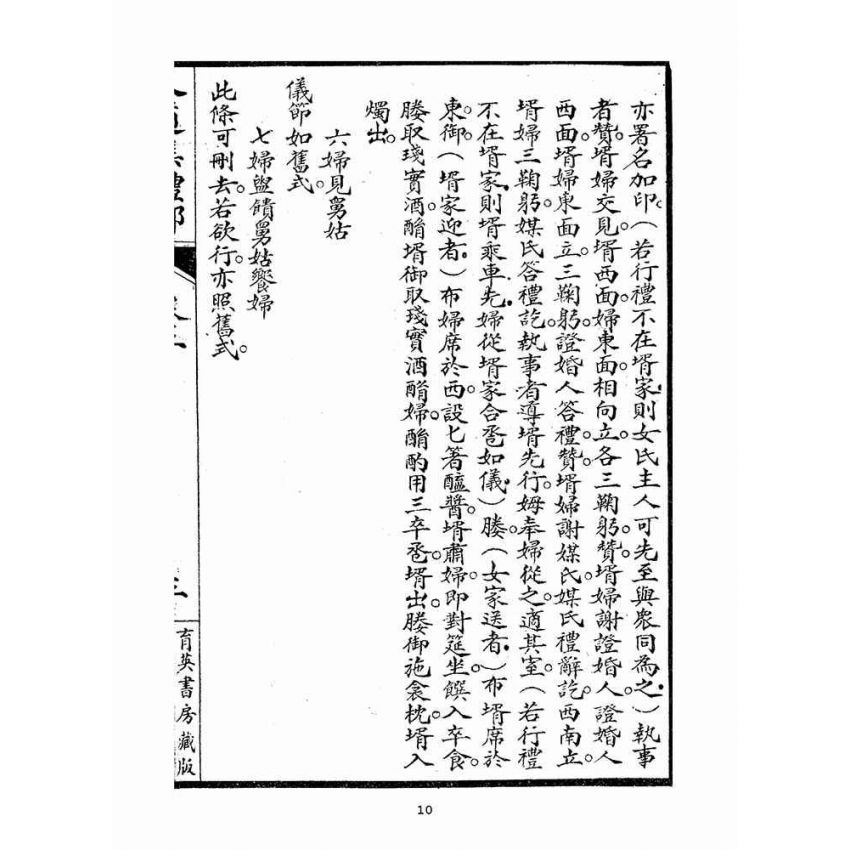 亦署名加印。(若行禮不在壻家。則女氏主人可先至與眾同為之。)執事
者贊。壻婦交見。壻西面。婦東面。相向立。各三鞠躬。贊。壻婦謝證婚人。證婚人
西面。壻婦東面立。三鞠躬。證婚人答禮。贊。壻婦謝媒氏。媒氏禮辭。訖。西南立。
壻婦三鞠躬。媒氏答禮。訖。執事者導壻先行。姆奉婦從之。適其室。(若行禮
不在壻家。則壻乘車先。婦從。壻家合卺如儀。)媵。(女家送者。)布壻席於
東。御。(壻家迎者。)布婦席於西。設匕箸醢醬。壻肅婦。即對筵坐。饌入卒食。
媵取琖實酒。酳壻。御取琖實酒。酳婦。酳酌用三。卒卺。壻出。媵御施衾枕。壻入
燭出。
六婦見舅姑
儀節如舊式。
七婦盥饋舅姑饗婦
此條可刪去。若欲行。亦照舊式。
三
育英書房藏版
10